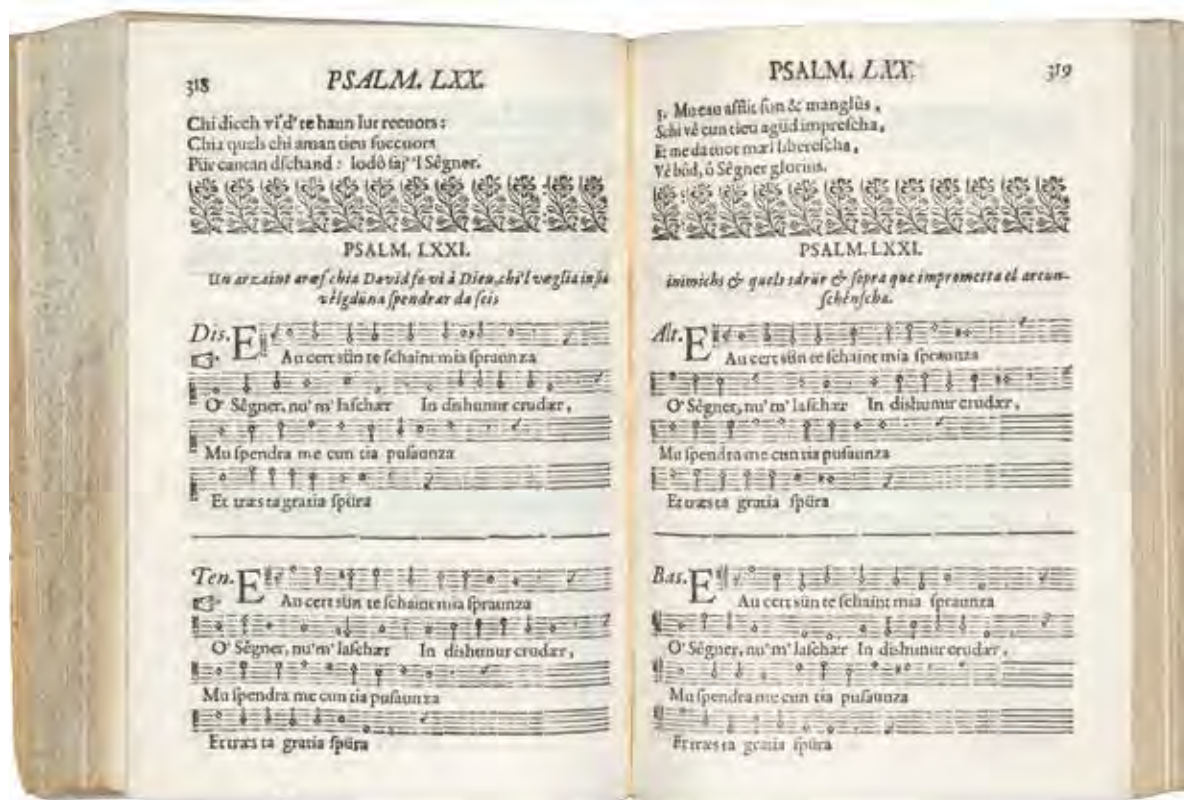 318 PSALM. LXX.
Chi dicch vſ d' te haun lur recuors:
Chia quels chi aman tieu ſuccuors
Pür cantan dſchand: lodô ſaj' 'l Sêgner.
PSALM. LXXI.
Un arzaint aræſ chia David fo vi à Dieu, chi'l vœglia in ſia
vêlgdüna ſpendrar da ſeis
Dis. EAu cert sün te ſchaint mia ſpraunza
O' Sêgner, nu' m' laſchær In dishunur crudær,
Mu ſpendra me cun tia puſaunza
Et træs ta gratia ſpüra
Ten. EAu cert sün te ſchaint mia ſpraunza
O' Sêgner, nu' m' laſchær In dishunur crudær,
Mu ſpendra me cun tia puſaunza
Et træs ta gratia ſpüra
PSALM. LXX. 319
5. Mu eau afflit ſun & manglûs,
Schi vê cun tieu agüd impreſcha,
Et me da tuot mæl libereſcha,
Vê bôd, ô Sêgner glorius.
PSALM. LXXI.
inimichs & quels sdrür & ſopra que imprometta el arcun-
ſchênſcha.
Alt. EAu cert sün te ſchaint mia ſpraunza
O' Sêgner, nu' m' laſchær In dishunur crudær,
Mu ſpendra me cun tia puſaunza
Et træs ta gratia ſpüra
Bas. EAu cert sün te ſchaint mia ſpraunza
O' Sêgner, nu' m' laſchær In dishunur crudær,
Mu ſpendra me cun tia puſaunza
Et træs ta gratia ſpüra